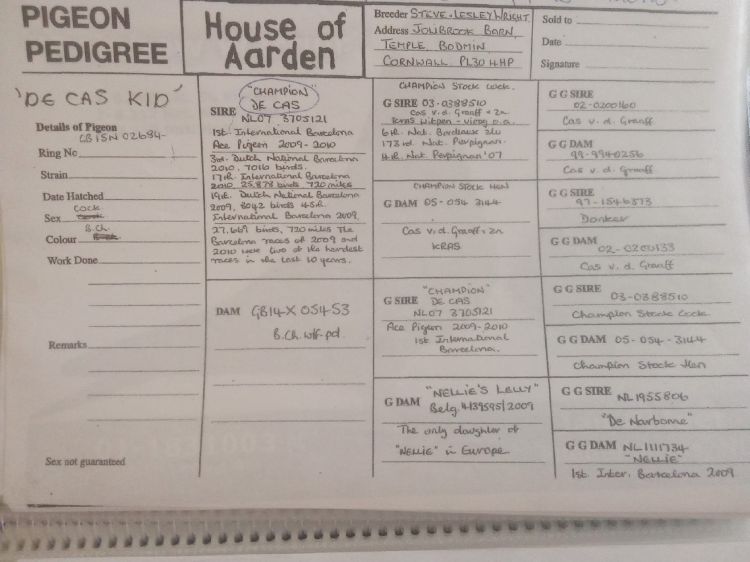 PIGEON
PEDIGREE
House of
Aarden
Breeder STEVE & LESLEY WRIGHT
Address JOWBROOK BARN,
TEMPLE, BODMIN
CORNWALL. PL30 4HP
Sold to
Date
Signature
'DE CAS KID'
Details of Pigeon
GB15N 02684
Ring No
Strain
Date Hatched
Cock
Sex
B.Ch.
Colour
Work Done
Remarks
Sex not guaranteed
"CHAMPION"
DE CAS
SIRE
NL07 3705121
1st. International Barcelona
Ace Pigeon 2009-2010
3rd. Dutch National Barcelona
2010, 7016 birds.
17th. International Barcelona
2010, 25,878 birds 720 miles
19th. Dutch National Barcelona
2009, 8042 birds 45th.
International Barcelona 2009,
27,669 birds, 720 miles The
Barcelona races of 2009 and
2010 were two of the hardest
races in the last 10 years.
DAM GB14-X 05453
B.Ch. wf-pd.
CHAMPION STOCK COCK.
G SIRE 03-0388510
Cas v.d. Graaff × zn
Kras Witpen
6th. Nat. Bordeaux
173rd. Nat. Perpignan.
4th. Nat. Perpignan '07
CHAMPION STOCK HEN
G DAM 05-054 3144
Cas v.d. Graaff × zn
KRAS
"CHAMPION"
G SIRE DE CAS
NL07 3705121
Ace Pigeon 2009-2010
1st. International
Barcelona.
"NELLIE'S LELLY"
G DAM Belg. 4139595/2009
The only daughter of
"NELLIE" in Europe
G G SIRE
02-0200160
Cas v. d. Graaff
G G DAM
99-9940256
Cas v. d. Graaff
G G SIRE
97-1546373
Donker
G G DAM
02-0200133
Cas v.d. Graaff
G G SIRE
03-0388510
Champion Stock Cock
G G DAM 05-054-3144
Champion Stock Hen
G G SIRE NL1955806
"De Narbonne"
G G DAM NL1111734
"NELLIE"
1st. Inter. Barcelona 2009